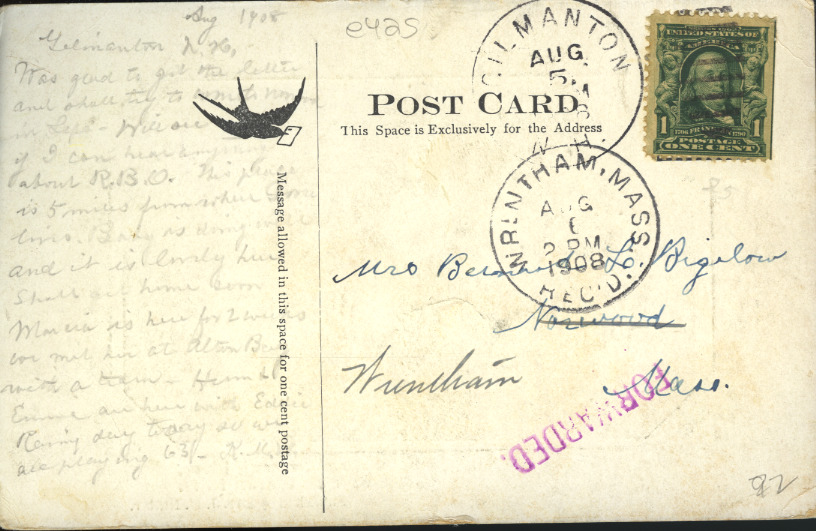 Aug 1908
Gilmanton N.H.,
Was glad to get the letter
and shall try to come to
in Sept. Will see
if I can hear anything
about R.B.O. This place
is 5 miles from where
lives. Baby is doing
and it is lovely here
Shall get home soon
Marcia is here for 2 weeks
we met her at Alton Bay
with a team -
Emma are here with Eddie
Rainy day today so we
are playing 63 -
Message allowed in this space for one cent postage
e425
GILMANTON
AUG.
5
N.H.
POST CARD
This Space is Exclusively for the Address
UNITED STATES OF
AMERICA
1 1706 FRANKLIN 1790 1
POSTAGE
ONE CENT
WRENTHAM, MASS.
AUG
6
2 PM
1908
REC'D.
Mrs L. Bigelow
Norwood
Wrentham Mass.
FORWARDED.